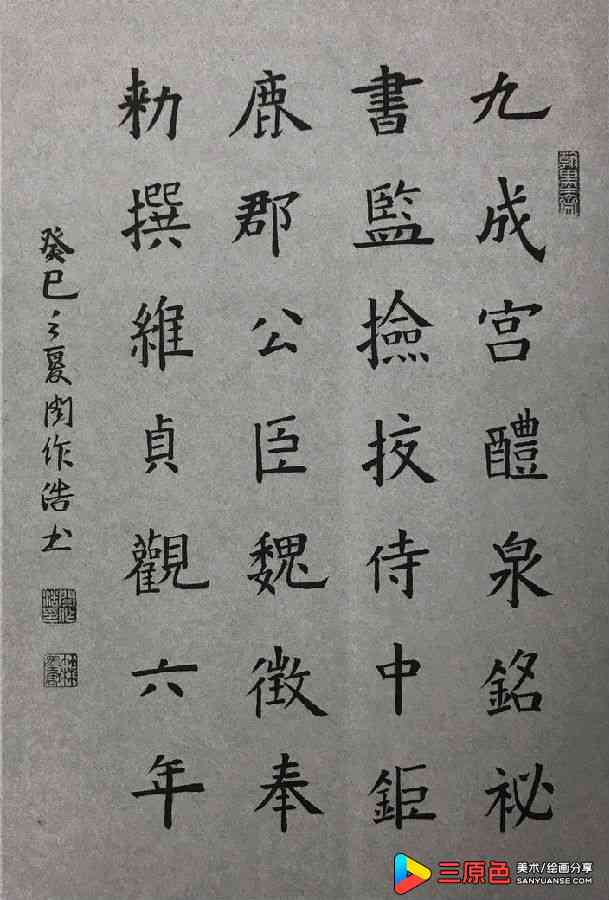 九成宫醴泉銘祕
書監撿挍侍中鉅
鹿郡公臣魏徵奉
勑撰維貞觀六年
癸巳之夏閔作浩书
翰墨齋
三原色 美术/绘画分享
SANYUANSE.COM